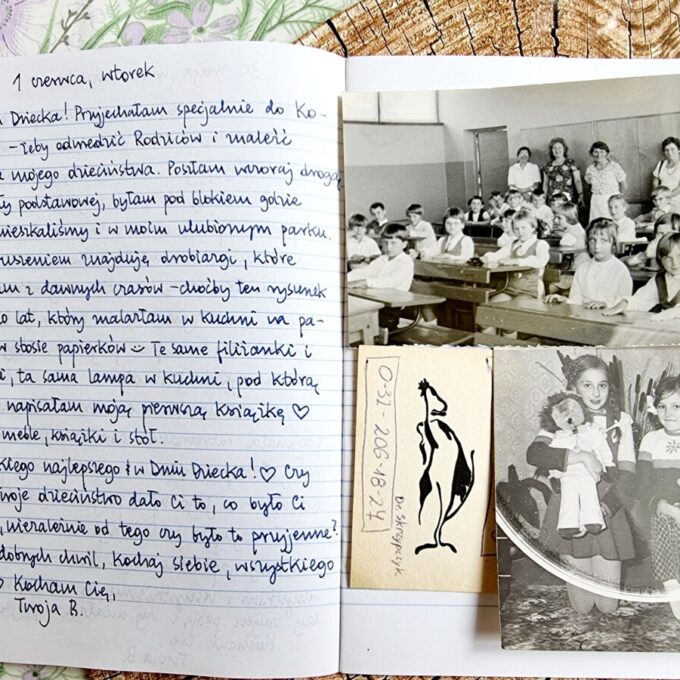 1 czerwca, wtorek
Dziecka! Przyjechałam specjalnie do Ko-
-żeby odwiedzić Rodziców i znaleźć
mojego dzieciństwa. Poszłam wczoraj drogą
ły podstawowej, byłam pod blokiem gdzie
mieszkaliśmy i w moim ulubionym parku.
ruszeniem znajduję drobiazgi, które
am z dawnych czasów – choćby ten rysunek
lat, który malarłam w kuchni na pa-
w stosie papierków Te same filiżanki i
i, ta sama lampa w kuchni, pod którą
napisałam moją pierwszą książkę ♡
meble, książki i stół.
kiego najlepszego w Dniu Dziecka! ♡ Czy
woje dzieciństwo dało Ci to, co było Ci
, niezależnie od tego czy było to przyjemne?
dobnych chwil, kochaj siebie, wszystkiego
♡ Kocham Cię,
Twoja B.
0-32-206-18-24
Dr. Skrzypczyk